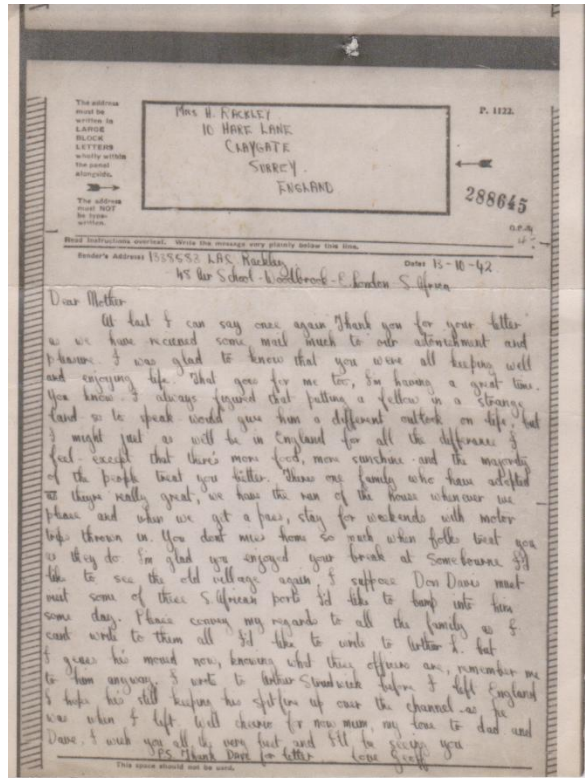 The address
must be
written in
LARGE
BLOCK
LETTERS
wholly within
the panel
alongside.
The address
must NOT
be type-
written.
MRS H. RACKLEY
10 HARE LANE
CLAYGATE
SURREY
ENGLAND
P. 1122.
288645
Read instructions overleaf. Write the message very plainly below this line.
Sender's Address 1338583 LAC Rackley Date 15-10-42
45 Air School - Woodbrook - E. London - S Africa
Dear Mother
At last I can say once again Thank you for your letter
as we have recieved some mail much to our astonishment and
pleasure. I was glad to know that you were all keeping well
and enjoying life. That goes for me too, I'm having a great time.
You know I always figured that putting a fellow in a strange
land so to speak would give him a different outlook on life, but
I might just as well be in England for all the difference I
feel - except that there's more food, more sunshine - and the majority
of the people treat you better. Theres one family who have adopted
us theyre really great, we have the run of the house whenever we
please and when we get a pass, stay for weekends with motor
trips thrown in. You dont miss home so much when folks treat you
as they do. I'm glad you enjoyed your break at Sombourne I'd
like to see the old village again, I suppose Don Dave must
visit some of these S. African ports I'd like to bump into him
some day. Please convey my regards to all the family as I
cant write to them all I'd like to write to Arthur L. but
I guess his moved now, knowing what these officers are, remember me
to him anyway. I wrote to Arthur before I left England
I hope his still keeping his spitfire up over the channel - as he
was when I left. Well cheerio for now mum, my love to dad and
Dave. I wish you all the very best and I'll be seeing you
P.S. Thank Dave for letter Love Geoff
This space should not be used.